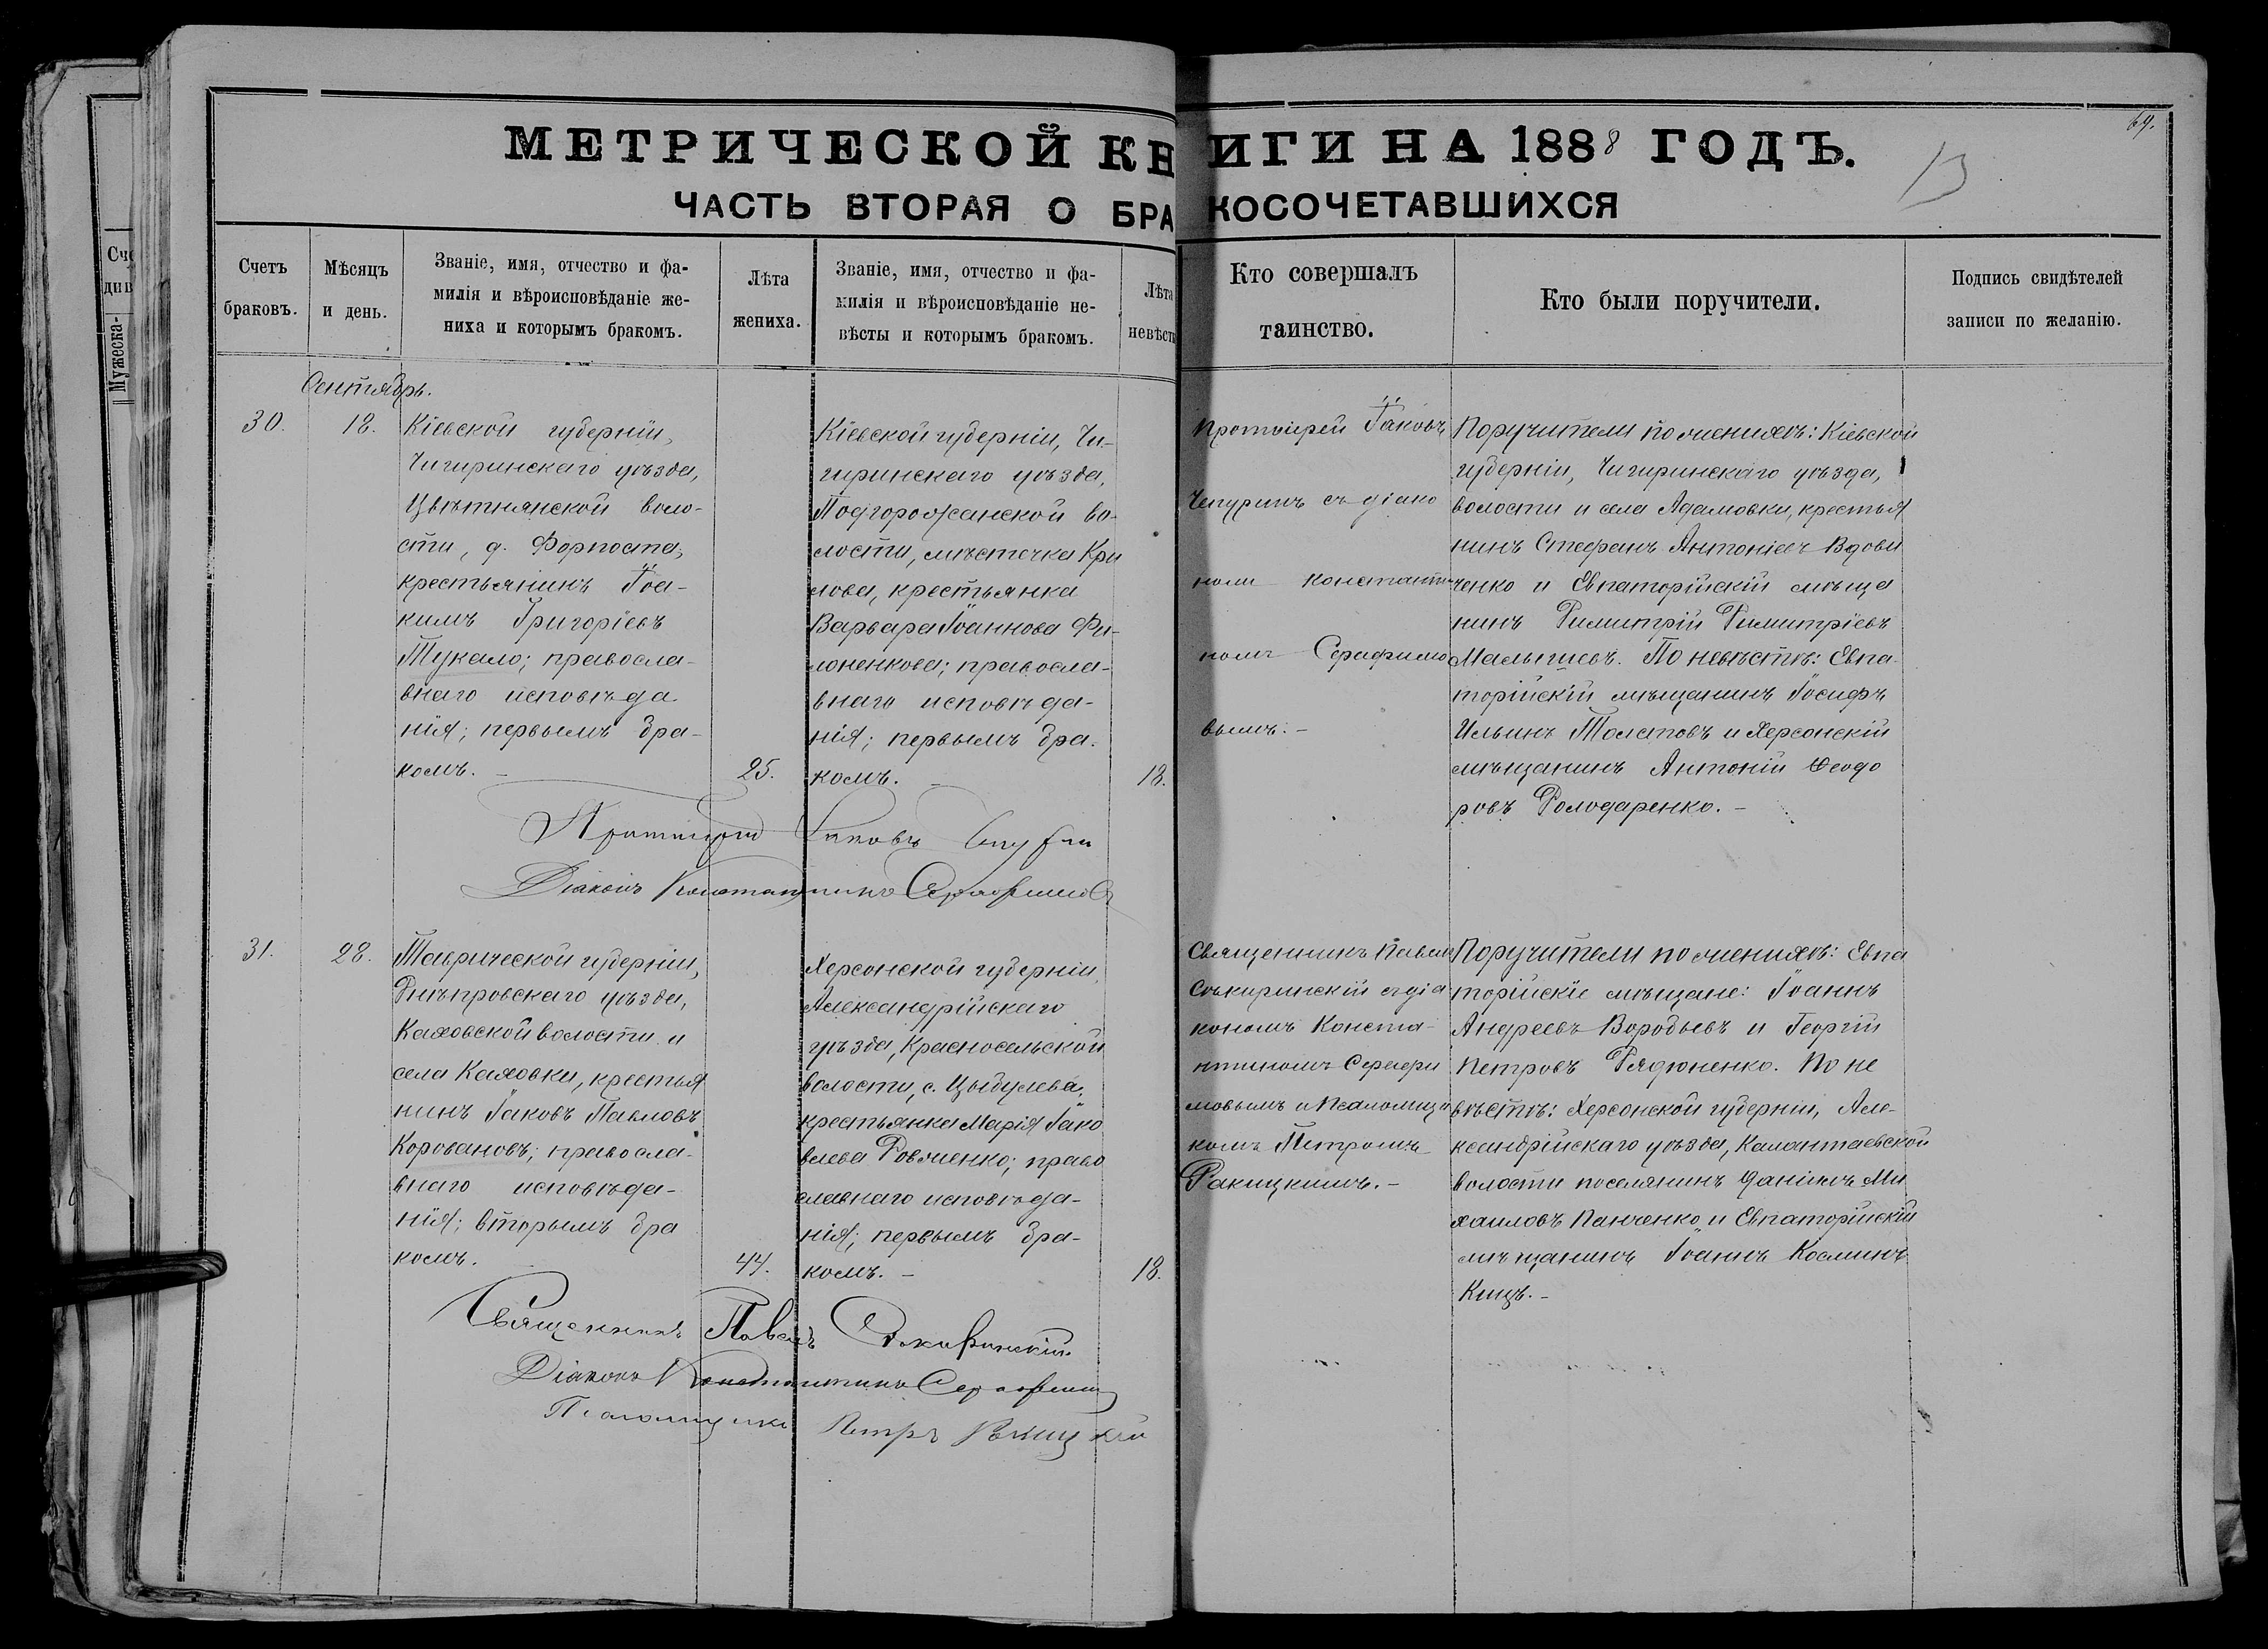 69.
МЕТРИЧЕСКОЙ КНИГИ НА 1888 ГОДЪ.
13
ЧАСТЬ ВТОРАЯ О БРАКОСОЧЕТАВШИХСЯ
Счетъ
браковъ.
Мѣсяцъ
и день.
Званіе, имя, отчество и фа-
милія и вѣроисповѣданіе же-
ниха и которымъ бракомъ.
Лѣта
жениха.
Званіе, имя, отчество и фа-
милія и вѣроисповѣданіе не-
вѣсты и которымъ бракомъ.
Лѣта
невѣсты
Кто совершалъ
таинство.
Кто были поручители.
Подпись свидѣтелей
записи по желанію.
Сентябрь.
30.
18.
Кіевской губерніи,
Чигиринскаго уѣзда,
Цвѣтнянской воло-
сти, д. Форпоста,
крестьянинъ Іоа-
кимъ Григоріевъ
Тукало; правосла-
внаго исповѣда
нія; первымъ бра-
комъ. –
25.
Кіевской губерніи, Чи-
гиринскаго уѣзда,
Подгорожанской во-
лости, мѣстечка Кры
лова, крестьянка
Варвара Іоаннова Фи-
лоненкова; правосла-
внаго исповѣда-
нія; первымъ бра-
комъ. –
18.
Протоіерей Іаковъ
Чепуринъ съ діако
номъ Константи
номъ Серафимо
вымъ. –
Поручители по женихѣ: Кіевской
губерніи, Чигиринскаго уѣзда,
волости и села Адамовки, крестья
нинъ Стефанъ Антоніевъ Вдови
ченко и Евпаторійскій мѣща
нинъ Димитрій Димитріевъ
Малышевъ. По невѣстѣ: Евпа
торійскій мѣщанинъ Іосифъ
Ильинъ Толстовъ и Херсонскій
мѣщанинъ Антоній Ѳеодо
ровъ Володаренко. –
Протоіерей Іаковъ Чепуринъ
Діаконъ Константинъ Серафимовъ
31.
28.
Таврической губерніи,
Днѣпровскаго уѣзда,
Каховской волости и
села Каховки, крестья
нинъ Іаковъ Павловъ
Коровановъ; правосла-
внаго исповѣда-
нія; вторымъ бра
комъ.
44.
Херсонской губерніи,
Александрійскаго
уѣзда, Красносельской
волости, с. Цыбулева,
крестьянка Марія Іако
влева Довженко; право
славнаго исповѣда-
нія; первымъ бра-
комъ. –
18.
Священникъ Павелъ
Сѣкиринскій съ діа
кономъ Конста-
нтиномъ Серафи
мовымъ и Псаломщи
комъ Петромъ
Ракицкимъ. –
Поручители по женихѣ: Евпа
торійскіе мѣщане: Іоаннъ
Андреевъ Воробьевъ и Георгій
Петровъ Дядюненко. По не
вѣстѣ: Херсонской губерніи, Але-
ксандрійскаго уѣзда, Калантаевской
волости поселянинъ Даніилъ Ми
хаиловъ Панченко и Евпаторійскій
мѣщанинъ Іоаннъ Косминъ
Кицъ. –
Священникъ Павелъ Сѣкиринскій
Діаконъ Константинъ Серафимовъ
Псаломщикъ Петръ Ракицкій